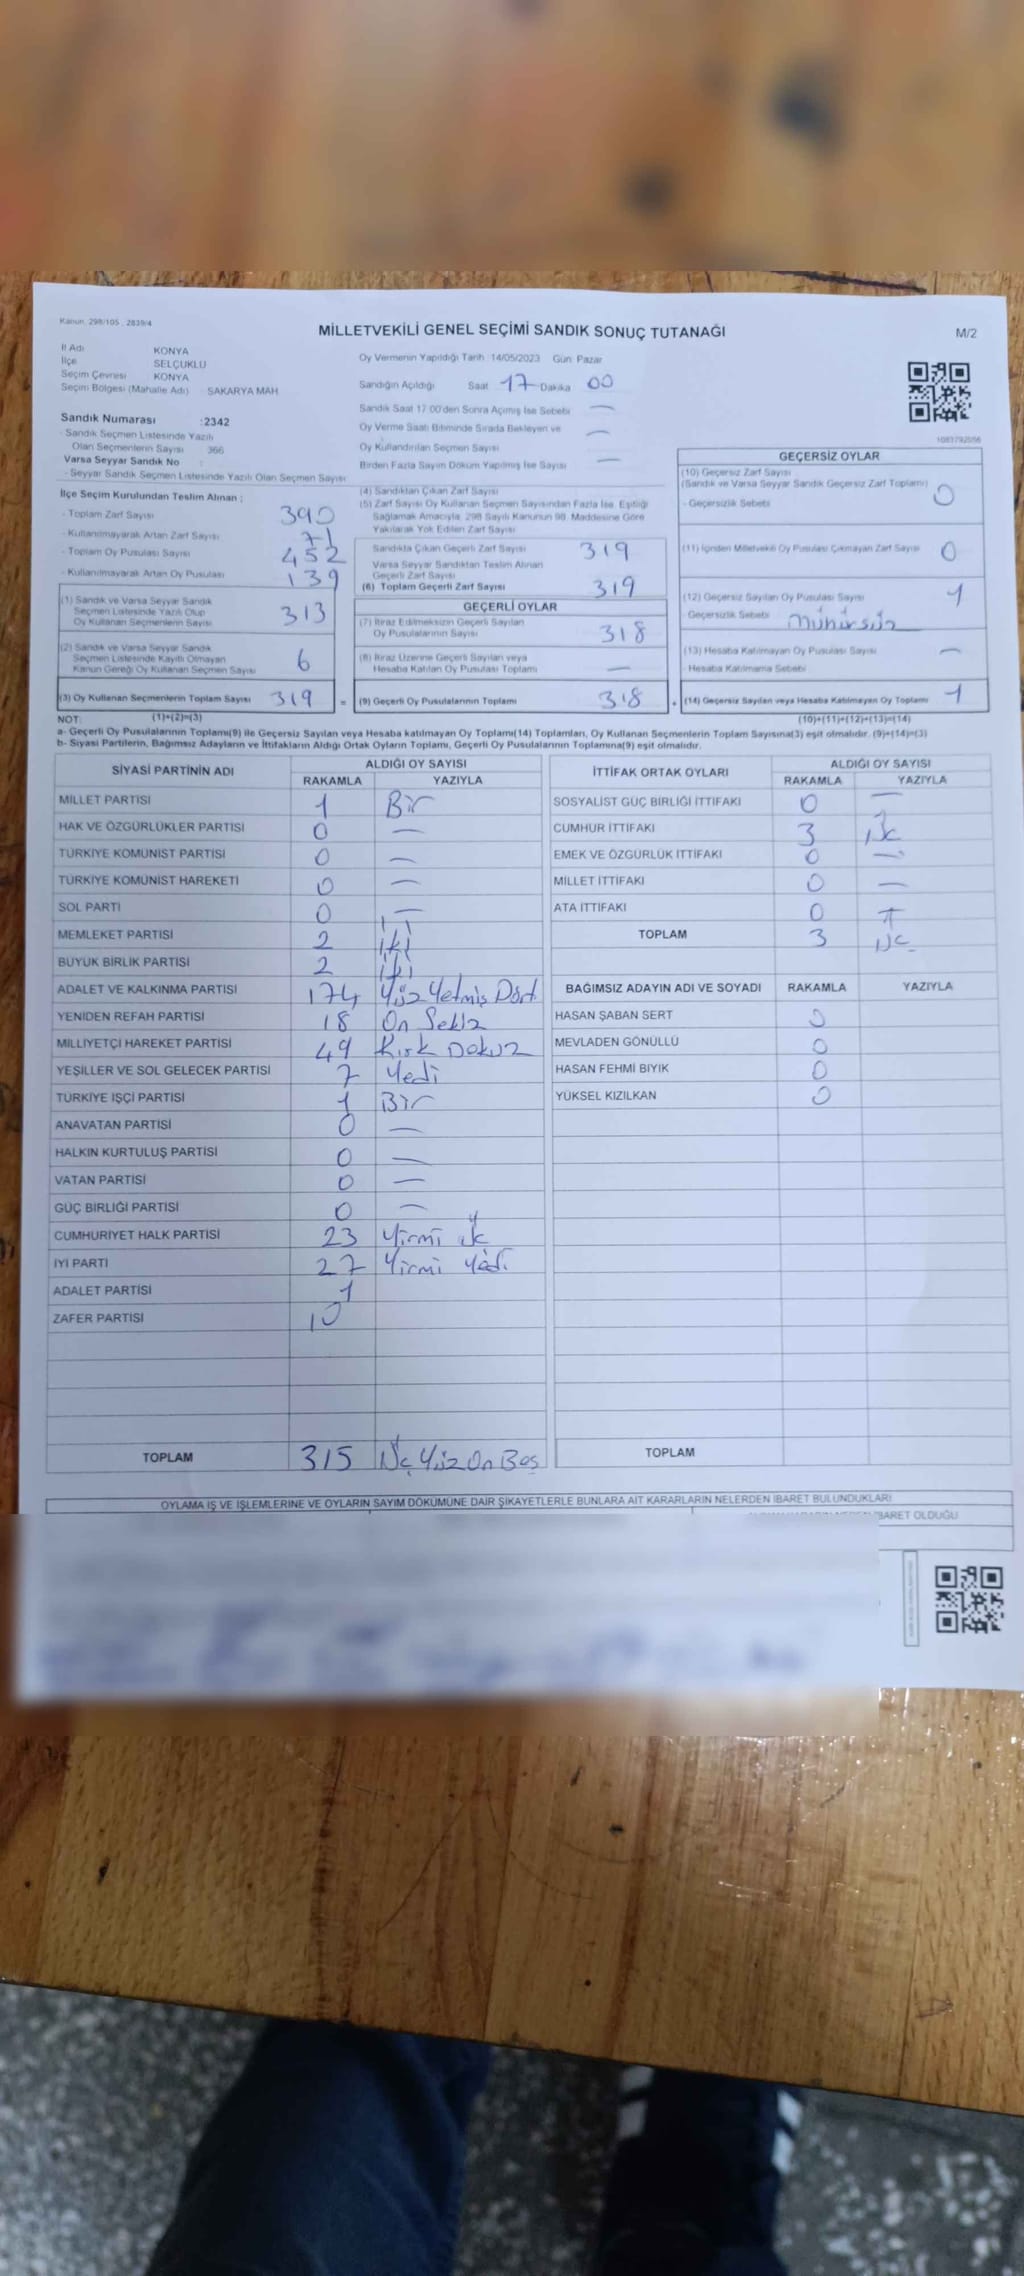 Kanun. 298/105 , 2839/4
MİLLETVEKİLİ GENEL SEÇİMİ SANDIK SONUÇ TUTANAĞI
M/2
İl Adı KONYA
İlçe SELÇUKLU
Seçim Çevresi KONYA
Seçim Bölgesi (Mahalle Adı) SAKARYA MAH.
Sandık Numarası :2342
- Sandık Seçmen Listesinde Yazılı
Olan Seçmenlerin Sayısı 366
Varsa Seyyar Sandık No :
- Seyyar Sandık Seçmen Listesinde Yazılı Olan Seçmen Sayısı
Oy Vermenin Yapıldığı Tarih :14/05/2023 Gün: Pazar
Sandığın Açıldığı Saat 17 Dakika 00
Sandık Saat 17:00'den Sonra Açımış İse Sebebi —
Oy Verme Saati Bitiminde Sırada Bekleyen ve
Oy Kullandırılan Seçmen Sayısı —
Birden Fazla Sayım Döküm Yapılmış İse Sayısı —
İlçe Seçim Kurulundan Teslim Alınan ;
- Toplam Zarf Sayısı 390
- Kullanılmayarak Artan Zarf Sayısı 71
- Toplam Oy Pusulası Sayısı 452
- Kullanılmayarak Artan Oy Pusulası 139
(1) Sandık ve Varsa Seyyar Sandık
Seçmen Listesinde Yazılı Olup
Oy Kullanan Seçmenlerin Sayısı 313
(2) Sandık ve Varsa Seyyar Sandık
Seçmen Listesinde Kayıtlı Olmayan
Kanun Gereği Oy Kullanan Seçmen Sayısı 6
(3) Oy Kullanan Seçmenlerin Toplam Sayısı 319 =
(4) Sandıktan Çıkan Zarf Sayısı
(5) Zarf Sayısı Oy Kullanan Seçmen Sayısından Fazla İse, Eşitliği
Sağlamak Amacıyla, 298 Sayılı Kanunun 98. Maddesine Göre
Yakılarak Yok Edilen Zarf Sayısı
Sandıkta Çıkan Geçerli Zarf Sayısı 319
Varsa Seyyar Sandıktan Teslim Alınan
Geçerli Zarf Sayısı
(6) Toplam Geçerli Zarf Sayısı 319
GEÇERLİ OYLAR
(7) İtiraz Edilmeksizin Geçerli Sayılan
Oy Pusulalarının Sayısı 318
(8) İtiraz Üzerine Geçerli Sayılan veya
Hesaba Katılan Oy Pusulası Toplamı —
(9) Geçerli Oy Pusulalarının Toplamı 318 +
1083792056
GEÇERSİZ OYLAR
(10) Geçersiz Zarf Sayısı
(Sandık ve Varsa Seyyar Sandık Geçersiz Zarf Toplamı) 0
- Geçersizlik Sebebi
(11) İçinden Milletvekili Oy Pusulası Çıkmayan Zarf Sayısı 0
(12) Geçersiz Sayılan Oy Pusulası Sayısı 1
- Geçersizlik Sebebi mühürsüz
(13) Hesaba Katılmayan Oy Pusulası Sayısı —
- Hesaba Katılmama Sebebi
(14) Geçersiz Sayılan veya Hesaba Katılmayan Oy Toplamı 1
NOT: (1)+(2)=(3) (10)+(11)+(12)+(13)=(14)
a- Geçerli Oy Pusulalarının Toplamı(9) ile Geçersiz Sayılan veya Hesaba katılmayan Oy Toplamı(14) Toplamları, Oy Kullanan Seçmenlerin Toplam Sayısına(3) eşit olmalıdır. (9)+(14)=(3)
b- Siyasi Partilerin, Bağımsız Adayların ve İttifakların Aldığı Ortak Oyların Toplamı, Geçerli Oy Pusulalarının Toplamına(9) eşit olmalıdır.
SİYASİ PARTİNİN ADI ALDIĞI OY SAYISI
RAKAMLA YAZIYLA
MİLLET PARTİSİ 1 Bir
HAK VE ÖZGÜRLÜKLER PARTİSİ 0 —
TÜRKİYE KOMÜNİST PARTİSİ 0 —
TÜRKİYE KOMÜNİST HAREKETİ 0 —
SOL PARTİ 0 —
MEMLEKET PARTİSİ 2 iki
BÜYÜK BİRLİK PARTİSİ 2 iki
ADALET VE KALKINMA PARTİSİ 174 Yüz Yetmiş Dört
YENİDEN REFAH PARTİSİ 18 On Sekiz
MİLLİYETÇİ HAREKET PARTİSİ 49 Kırk Dokuz
YEŞİLLER VE SOL GELECEK PARTİSİ 7 Yedi
TÜRKİYE İŞÇİ PARTİSİ 1 Bir
ANAVATAN PARTİSİ 0 —
HALKIN KURTULUŞ PARTİSİ 0 —
VATAN PARTİSİ 0 —
GÜÇ BİRLİĞİ PARTİSİ 0 —
CUMHURİYET HALK PARTİSİ 23 Yirmi üç
İYİ PARTİ 27 Yirmi Yedi
ADALET PARTİSİ 1
ZAFER PARTİSİ 10
TOPLAM 315 Üç Yüz On Beş
İTTİFAK ORTAK OYLARI ALDIĞI OY SAYISI
RAKAMLA YAZIYLA
SOSYALİST GÜÇ BİRLİĞİ İTTİFAKI 0 —
CUMHUR İTTİFAKI 3 üç
EMEK VE ÖZGÜRLÜK İTTİFAKI 0 —
MİLLET İTTİFAKI 0 —
ATA İTTİFAKI 0 —
TOPLAM 3 üç
BAĞIMSIZ ADAYIN ADI VE SOYADI RAKAMLA YAZIYLA
HASAN ŞABAN SERT 0
MEVLADEN GÖNÜLLÜ 0
HASAN FEHMİ BIYIK 0
YÜKSEL KIZILKAN 0
TOPLAM
OYLAMA İŞ VE İŞLEMLERİNE VE OYLARIN SAYIM DÖKÜMÜNE DAİR ŞİKAYETLERLE BUNLARA AİT KARARLARIN NELERDEN İBARET BULUNDUKLARI
İBARET OLDUĞU